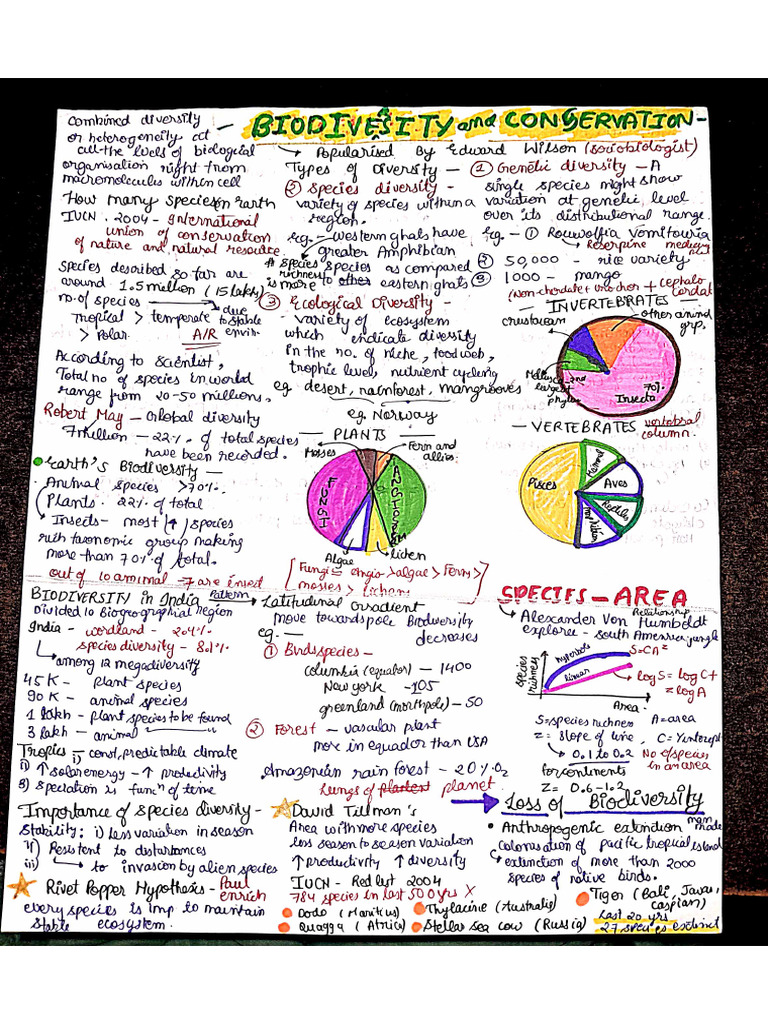 BIODIVESITY and CONSERVATION -
Combined diversity
or heterogeneity at
all the levels of biological
organisation right from
macromolecules within cell
How many species on earth
IUCN . 2004 - International
union of conservation
of nature and natural resource.
Species described so far are
around 1.5 million (15 lakh)
no. of species
Tropical > temperate
> Polar.
due to stable envir.
A/R
According to scientist,
Total no of species in world
range from 20-50 millions.
Robert May - Global diversity
7 million - 22%. of total species
have been recorded.
Earth's Biodiversity -
Animal species > 70%.
Plants . 22% of total
Insects - most ↑ species
rich taxonomic group making
more than 70% of total.
out of 10 animal - 7 are insect
→ Popularised By Edward Wilson (sociobiologist)
Types of Diversity - ① Genetic diversity - A
single species might show
variation at genetic level
over its distributional range.
eg. - ① Rauwolfia vomitouria
→ Reserpine
② 50,000 - rice variety
③ 1000 - mango
② Species diversity -
variety of species within a
region.
eg. - Western ghats have
greater Amphibian
species as compared
to other eastern ghats
# species
richness
is more
③ Ecological Diversity -
variety of ecosystem
which indicate diversity
in the no. of niche, food web,
trophic level, nutrient cycling
eg. desert, rainforest, mangrooves
eg Norway
(non-chordate + urochor + cephalo
cordat
- INVERTEBRATES -
crustacean
other animal
grp.
Mollusca - 2nd
largest
phylum
70%
Insecta
- PLANTS -
Mosses
Fern and
allies
FUNGI
ANGIOSPERM
Algae
lichen
[Fungi > angio > algae > Fern >
mosses > lichens]
- VERTEBRATES
vertebral
column.
Pisces
Mammal
Aves
Reptiles
Amphibian
BIODIVERSITY in India
Divided 10 Biogeographical Region
India - worldland - 2.4%.
species diversity - 8.1%.
→ among 12 megadiversity
45 K - plant species
90 K - animal species
1 lakh - plant species to be found
3 lakh - animal
Tropics - i) const, predictable climate
ii) ↑ solar energy - ↑ productivity
3) speciation is funcn of time
Pattern → Latitudinal Gradient
move towards pole biodversity
decreases
eg. -
① Birds species -
columbia (equator) - 1400
New york - 105
greenland (north pole) - 50
② Forest - vascular plant
more in equador than USA
Amazonian rain forest - 20% O2
lungs of planet
SPECIES - AREA
Relationship
→ Alexander Von Humboldt
explore - south American jungle
species
richness
hyperbola
linear
S = CA^Z
log S = log C +
Z log A
Area
S = species richness A = area
Z = slope of line, C = Y intercept
→ 0.1 to 0.2
No of species
in an area
for continents
Z = 0.6 - 1.2
Importance of Species diversity -
Stability: i) less variation in season
ii) Resistent to distubances
iii) → to invasion by alien species
Rivet Popper Hypothesis - Paul
enrich
every species is imp to maintain
stable ecosystem.
David Tillman's
Area with more species
less season to season variation
↑ productivity ↑ diversity
IUCN - Red list 2004
784 species in last 500 yrs X
Dodo (Maritius)
Thylacine (Australia)
Quagga (Africa)
Stellar sea cow (Russia)
Loss of Biodiversity
man made
• Anthropogenic extindion
colonisation of pacific tropical island
→ extinction of more than 2000
species of native birds.
Tiger (Bali, Javas,
caspian)
Last 20 yrs
27 species extinct